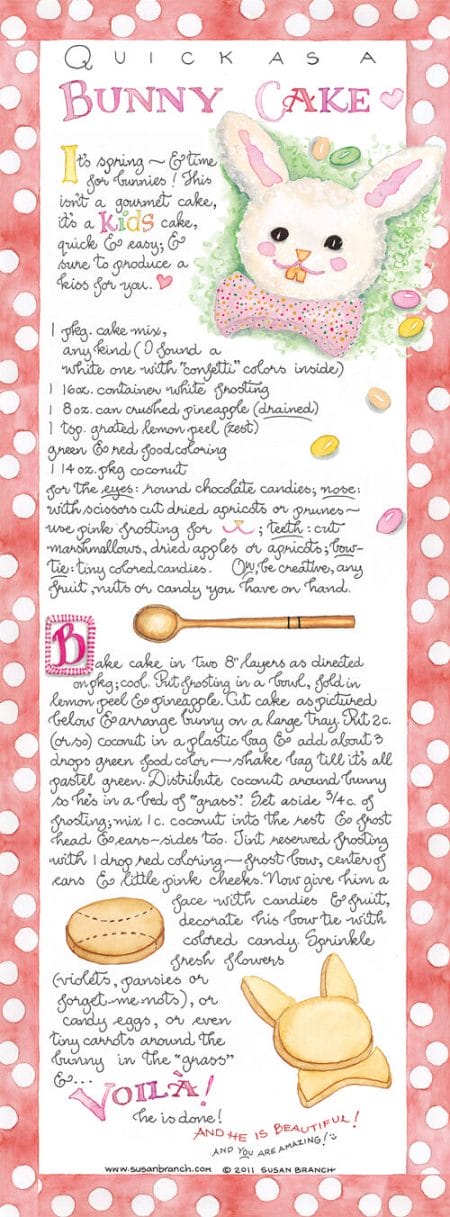 QUICK AS A
BUNNY CAKE
It's spring ~ & time
for bunnies! This
isn't a gourmet cake,
it's a Kids cake,
quick & easy; &
sure to produce a
kiss for you.
1 pkg. cake mix,
any kind (I found a
white one with "confetti" colors inside)
1 16oz. container white frosting
1 8 oz. can crushed pineapple (drained)
1 tsp. grated lemon peel (zest)
green & red food coloring
1 14 oz. pkg coconut
for the eyes: round chocolate candies; nose:
with scissors cut dried apricots or prunes~
use pink frosting for ; teeth: cut
marshmallows, dried apples or apricots; bow-
tie: tiny colored candies. Or, be creative, any
fruit, nuts or candy you have on hand.
Bake cake in two 8" layers as directed
on pkg; cool. Put frosting in a bowl, fold in
lemon peel & pineapple. Cut cake as pictured
below & arrange bunny on a large tray. Put 2 c.
(or so) coconut in a plastic bag & add about 3
drops green food color — shake bag till it's all
pastel green. Distribute coconut around bunny
so he's in a bed of "grass". Set aside 3/4 c. of
frosting; mix 1 c. coconut into the rest & frost
head & ears—sides too. Tint reserved frosting
with 1 drop red coloring—frost bow, center of
ears & little pink cheeks. Now give him a
face with candies & fruit,
decorate his bow tie with
colored candy. Sprinkle
fresh flowers
(violets, pansies or
forget-me-nots), or
candy eggs, or even
tiny carrots around the
bunny in the "grass"
&...
VOILÀ!
he is done!
AND HE IS BEAUTIFUL!
AND YOU ARE AMAZING!
www.susanbranch.com © 2011 SUSAN BRANCH